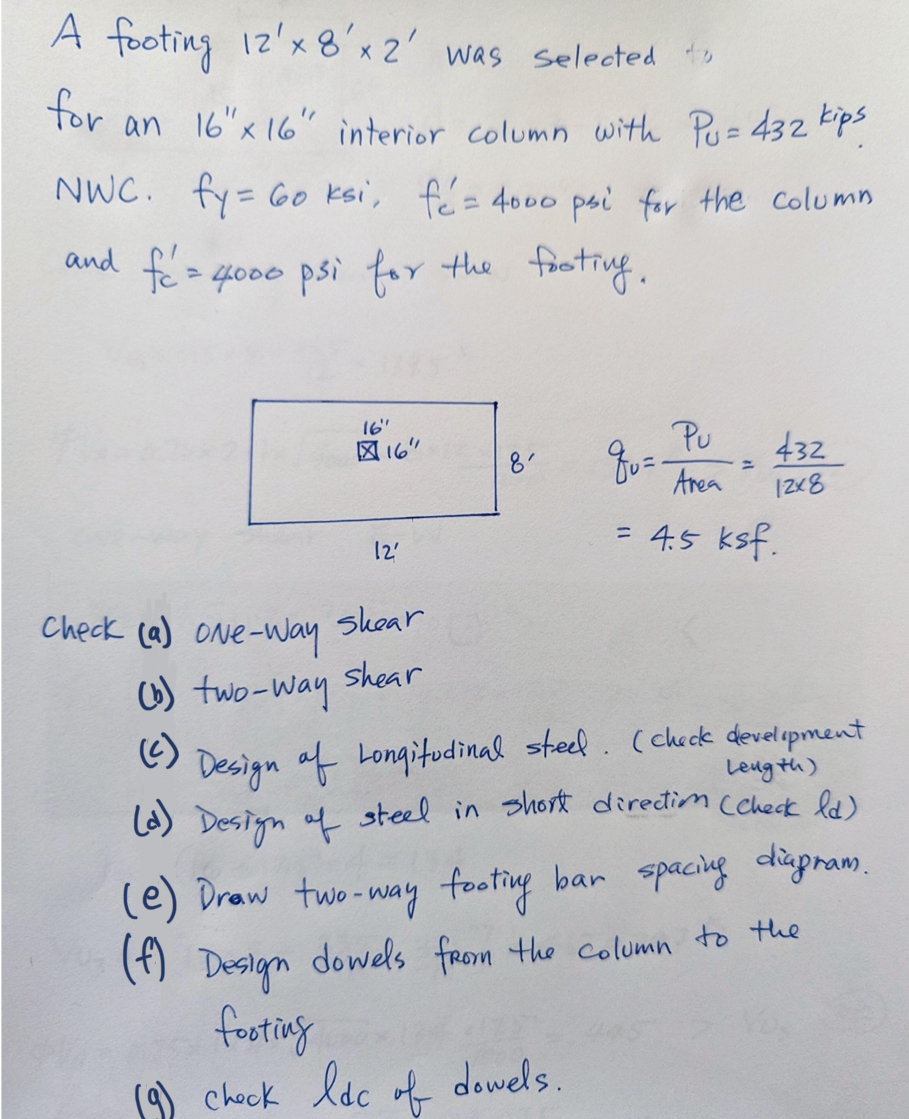 A footing 12' x 8' x 2' was selected to
for an 16" x 16" interior column with Pu = 432 kips.
NWC. fy = 60 ksi, fc' = 4000 psi for the column
and fc' = 4000 psi for the footing.
16"
16"
8'
12'
qu = Pu / Area = 432 / 12x8
= 4.5 ksf.
Check (a) one-way shear
(b) two-way shear
(c) Design of Longitudinal steel. (check development
Length)
(d) Design of steel in short direction (check ld)
(e) Draw two-way footing bar spacing diagram.
(f) Design dowels from the column to the
footing
(g) check ldc of dowels.